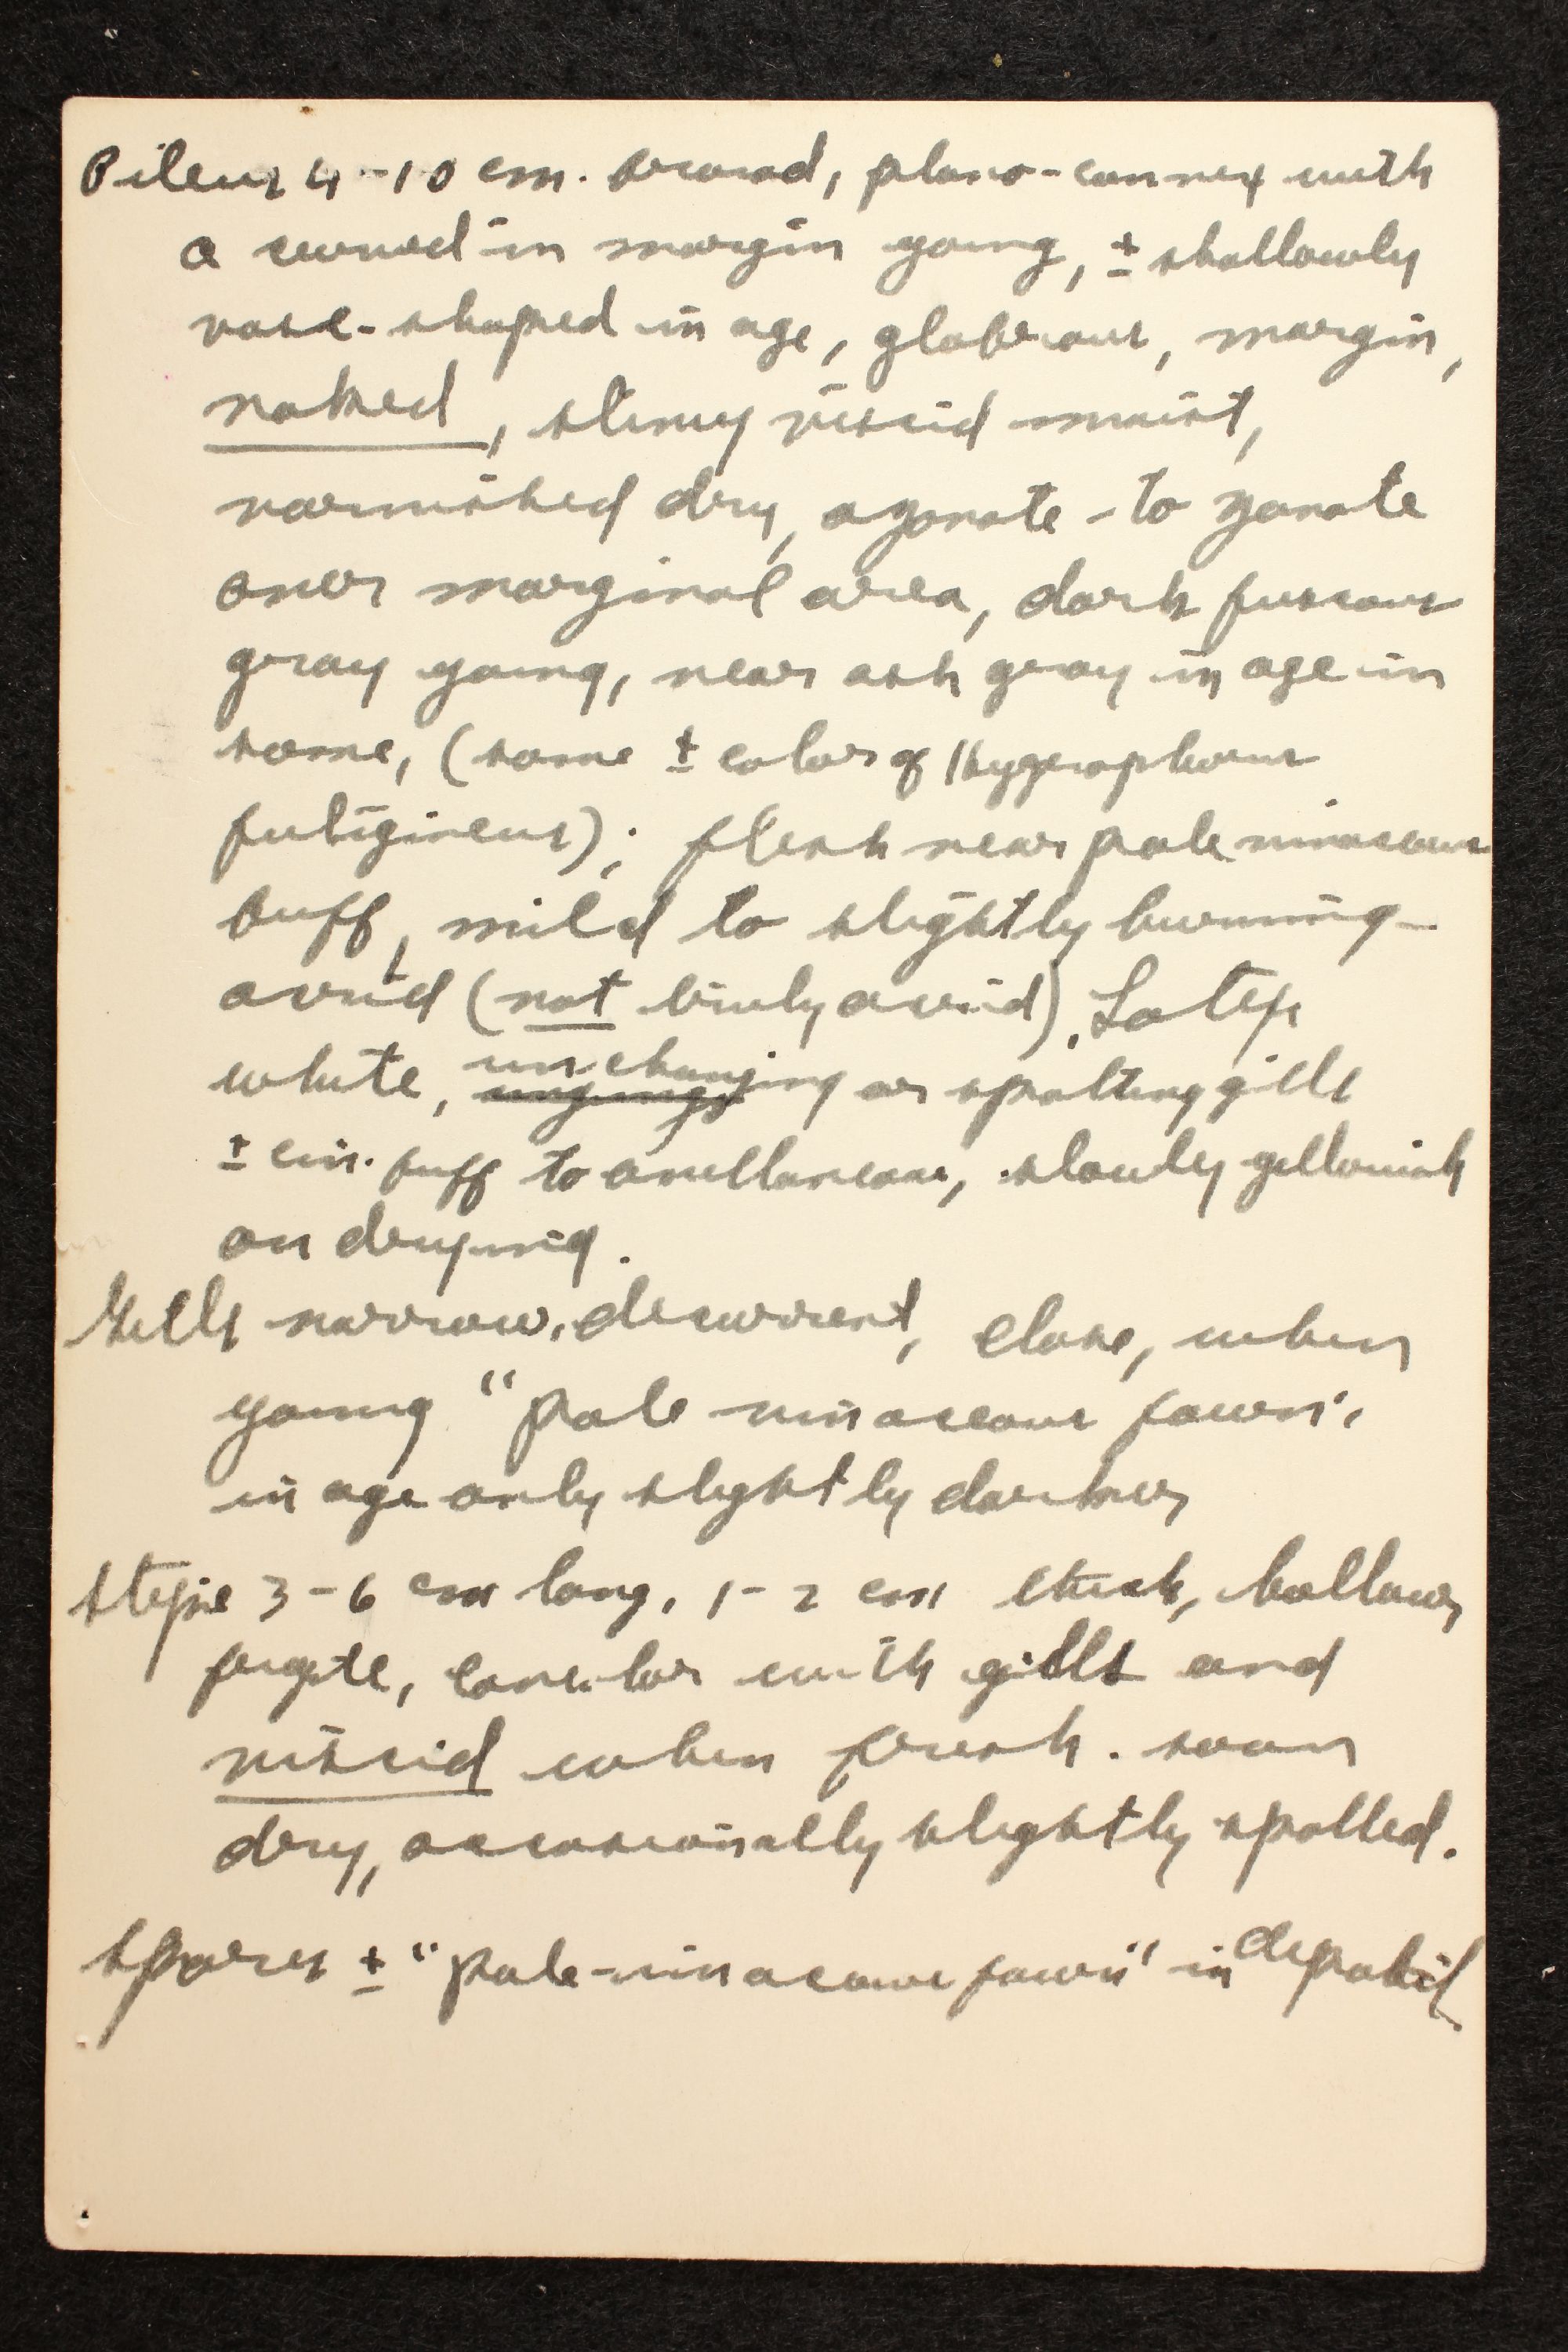 Pileus 4-10 cm. broad, plano-convex with
a curved-in margin young, ± shallowly
vase-shaped in age, glabrous, margin,
naked, slimy viscid moist,
varnished dry, azonate - to zonate
over marginal area, dark fuscous
gray young, near ash gray in age in
some, (some ± color of Hygrophorus
fuligineus); flesh near pale vinaceous
buff, mild to slightly burning-
acrid (not truly acrid). Latex
white, unchanging or spotting gills
± cin. buff to avellaneous, slowly yellowish
on drying.
Gills narrow, decurrent, close, when
young "pale vinaceous fawn",
in age only slightly darker
Stipe 3-6 cm long, 1-2 cm thick, hollow,
concolor with gills and
viscid when fresh. soon
dry, occasionally slightly spotted.
Spores ± "pale-vinaceous fawn" in deposit.